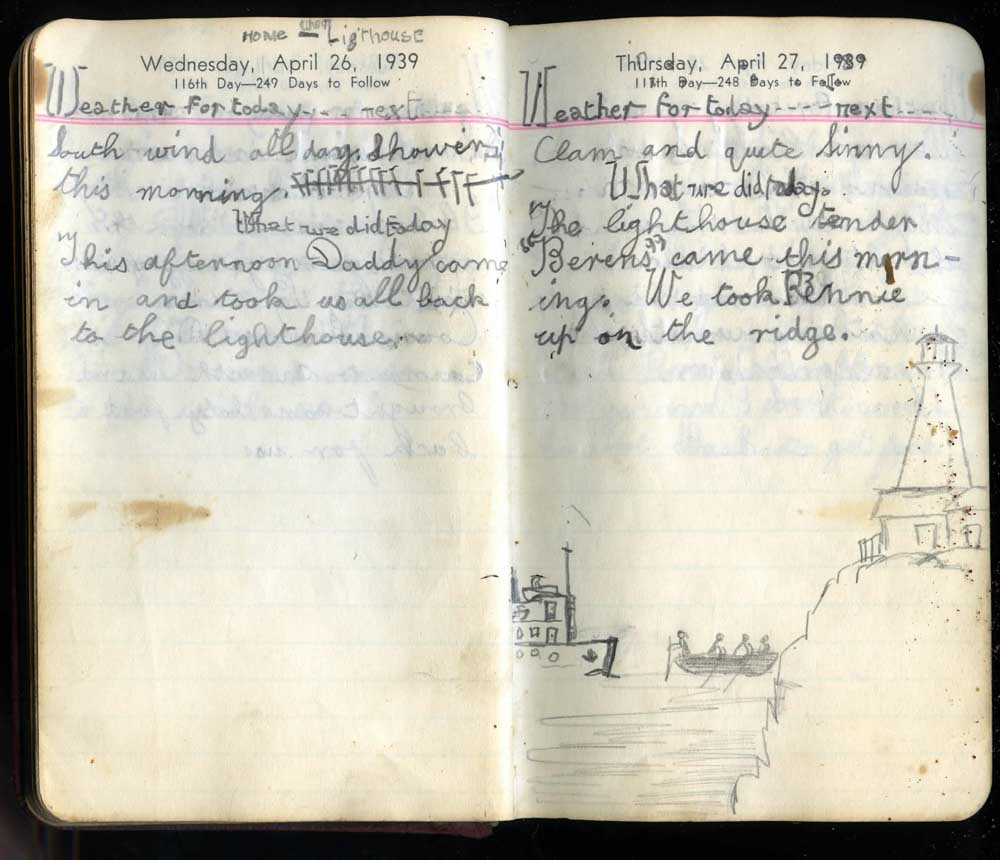 HOME Lighthouse
Wednesday, April 26, 1939
116th Day—249 Days to Follow
Weather for today--- next
South wind all day. Showers
this morning.
What we did today
This afternoon Daddy came
in and took us all back
to the lighthouse.
Thursday, April 27, 1939
117th Day—248 Days to Follow
Weather for today --- next---
Clam and quite Sinny.
What we did today.
The lighthouse tender
"Berens" came this morn-
ing. We took Rennie
up on the ridge.